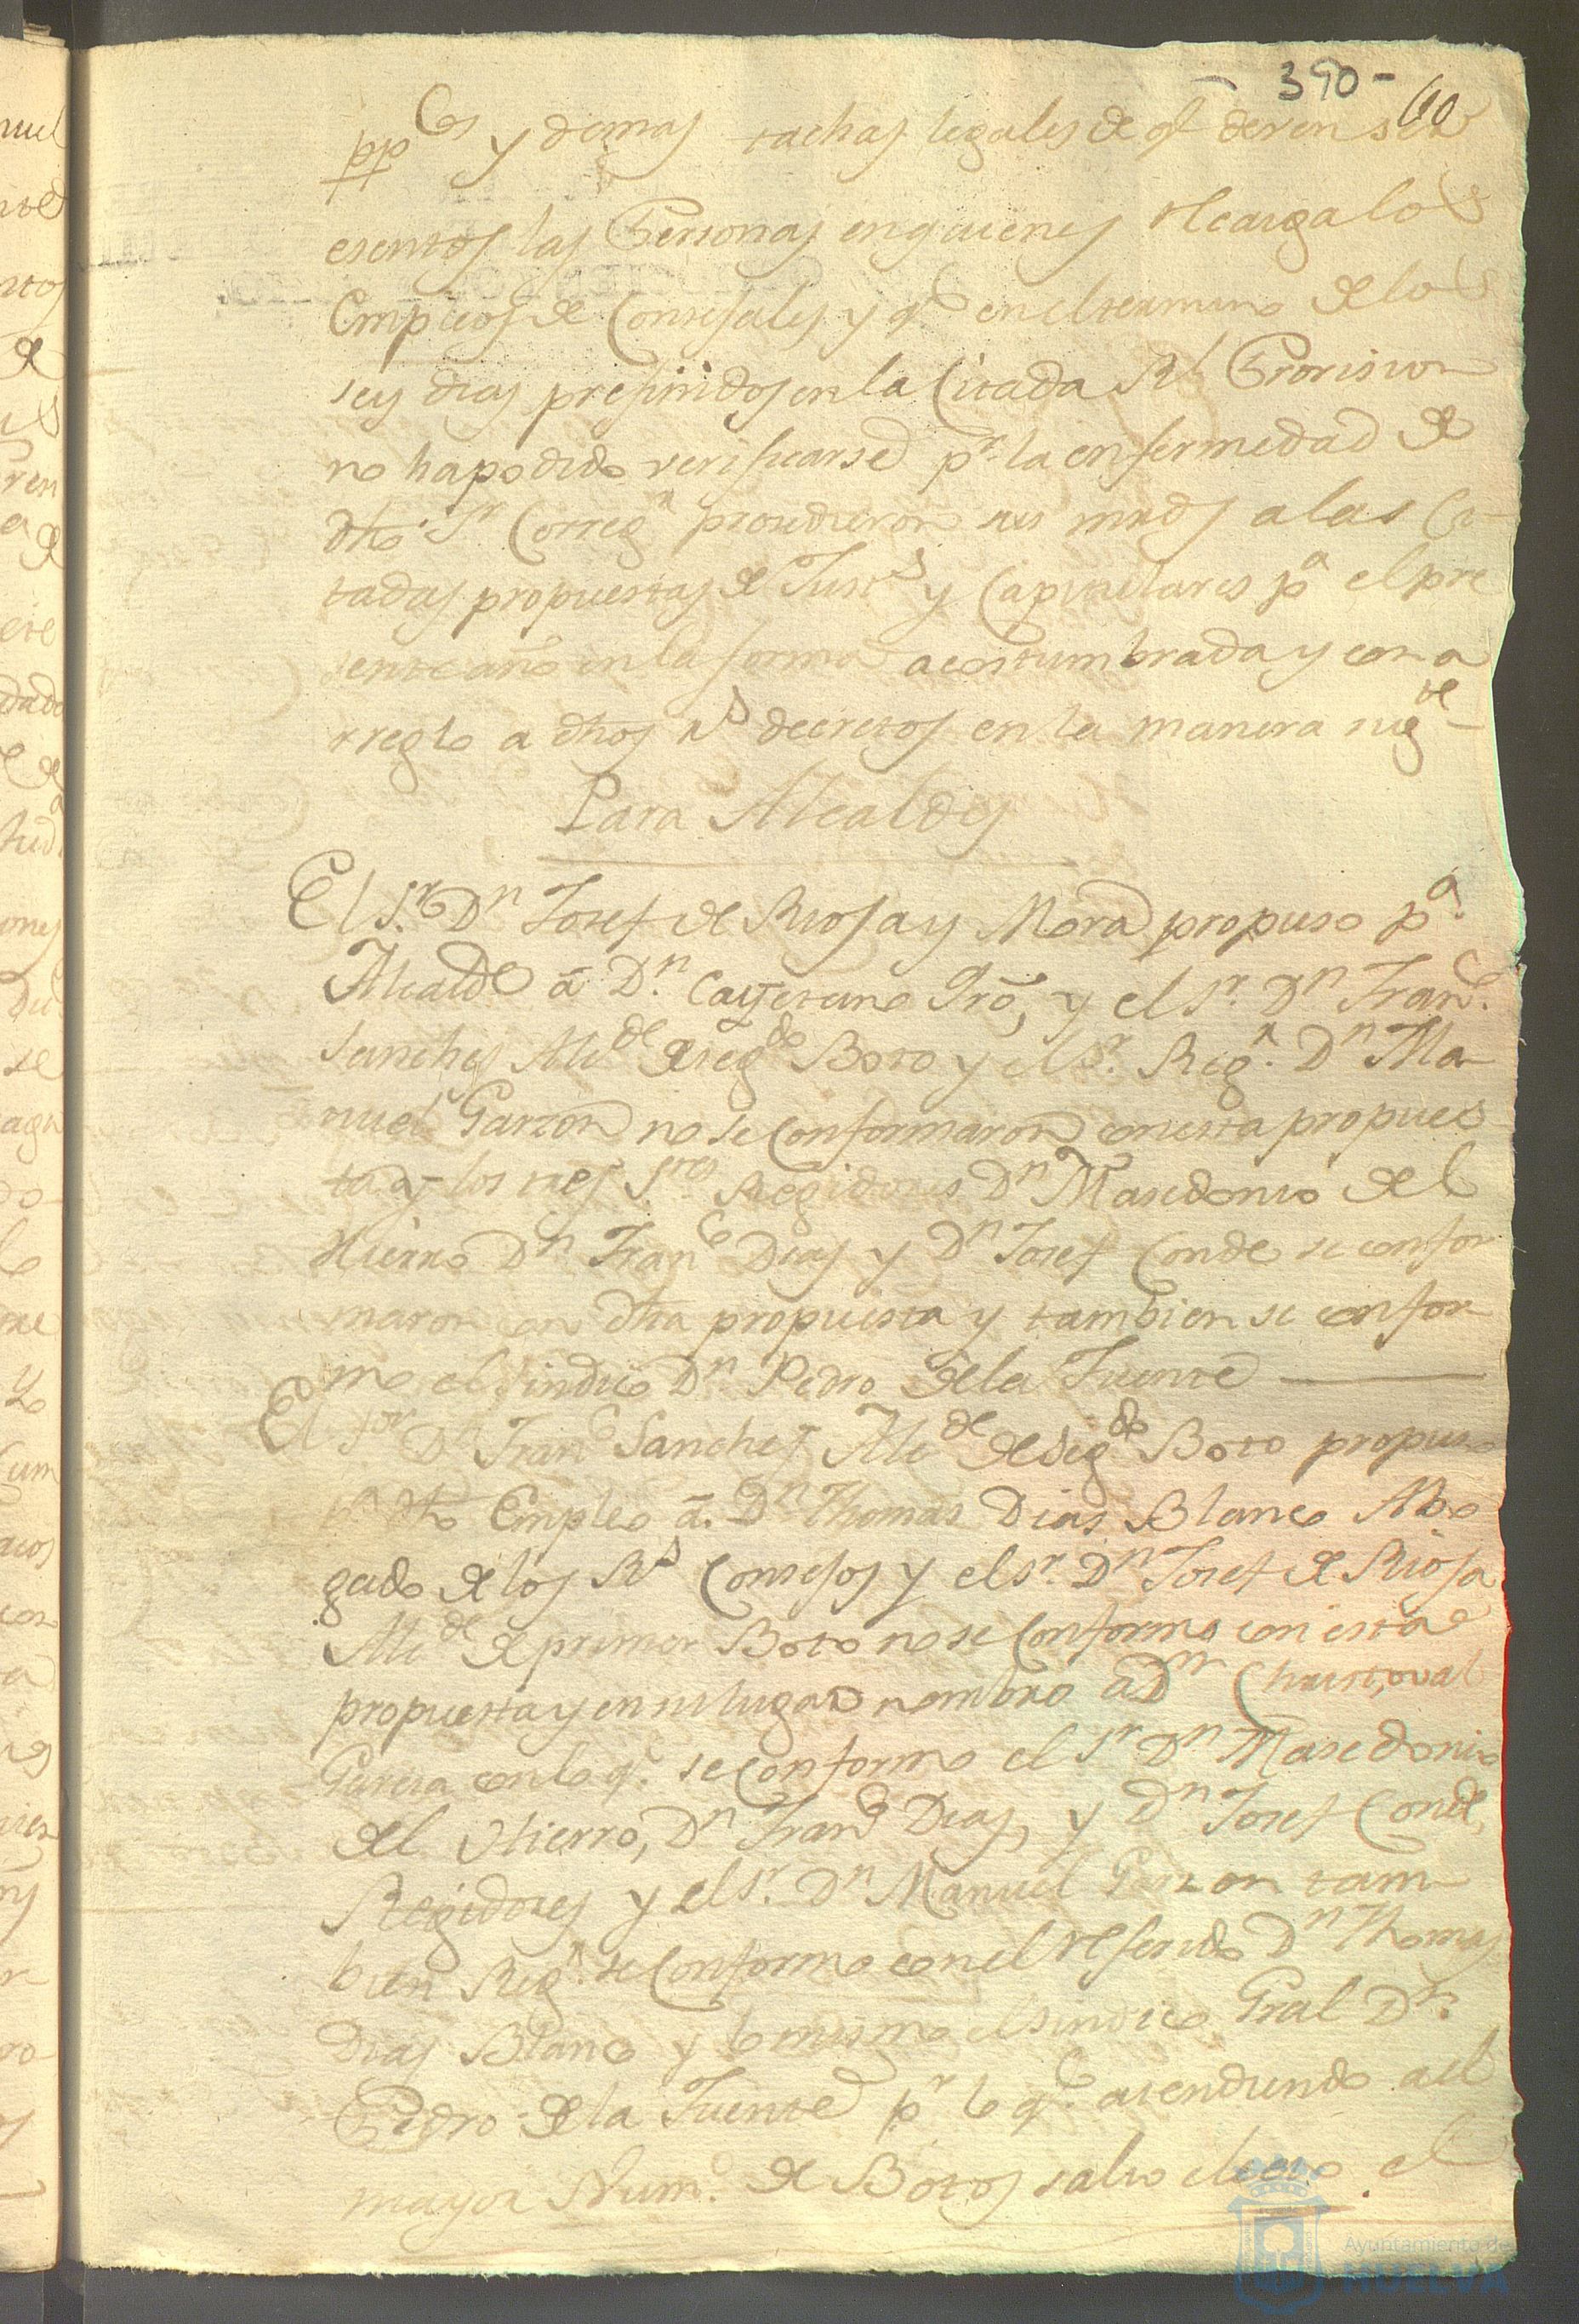 - 390 - 60
pp.cos y demas tachas legales de q.e deven ser
esentos las Personas en quienes recaiga los
Empleos de Consejales y q.e en el termino de los
seis dias prefinidos en la Citada Rl Provision
no ha podido verificarse p.r la enfermedad de
dho S.r Correg.r procedieron sus mrds a las Ci-
tadas propuestas de Just.s y Capitulares p.a el pre
sente año en la forma acostumbrada y con a
rreglo a dhos R.s decretos en la manera sig.te
Para Alcaldes
El S.r D.n Josef de Rioja y Mora propuso p.a
Alcalde â D.n Cayetano Gró, y el S.r D.n Fran.co
Sanches Alc.de de seg.do Boto y el S.r Reg.r D.n Ma-
nuel Garzon no se Conformaron con esta propues
ta y los tres S.res Regidores D.n Masedonio del
Hierro D.n Fran.co Dias y D.n Josef Conde se confor
maron con dha propuesta y tambien se confor
mo el sindico D.n Pedro de la Fuente
El S.or D.n Fran.co Sanches Alc.de de seg.do Boto propuso
p.a dho Empleo â D.n Thomas Dias Blanco Abo
gado de los R.s Consejos y el S.r D.n Josef de Rioja
Alc.de de primer Boto no se Conformo con esta
propuesta y en su lugar nombro a D.n Christoval
Garcia con lo q.e se Conformo el S.r D.n Masedonio
del Hierro, D.n Fran.co Dias, y D.n Josef Conde,
Regidores y el S.r D.n Manuel Garzon tam-
bien Reg.r se Conformo con el referido D.n Thomas
Dias Blanco y lo mismo el sindico Gral D.n
Pedro de la Fuente p.r lo q.e atendiendo a el
mayor Num.o de Botos salio electo el
Ayuntamiento de
HUELVA